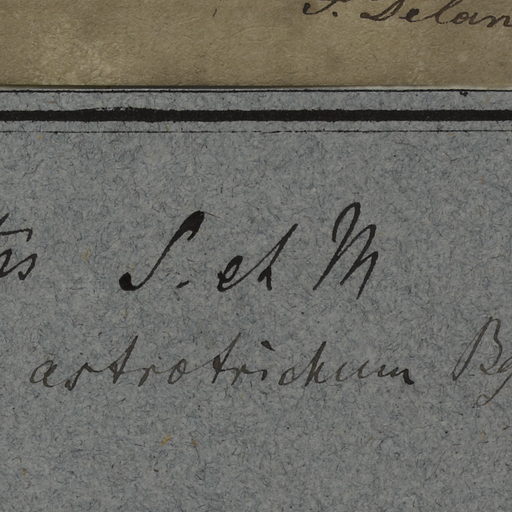 P. Delan
S. et M
astrotrichum Bg